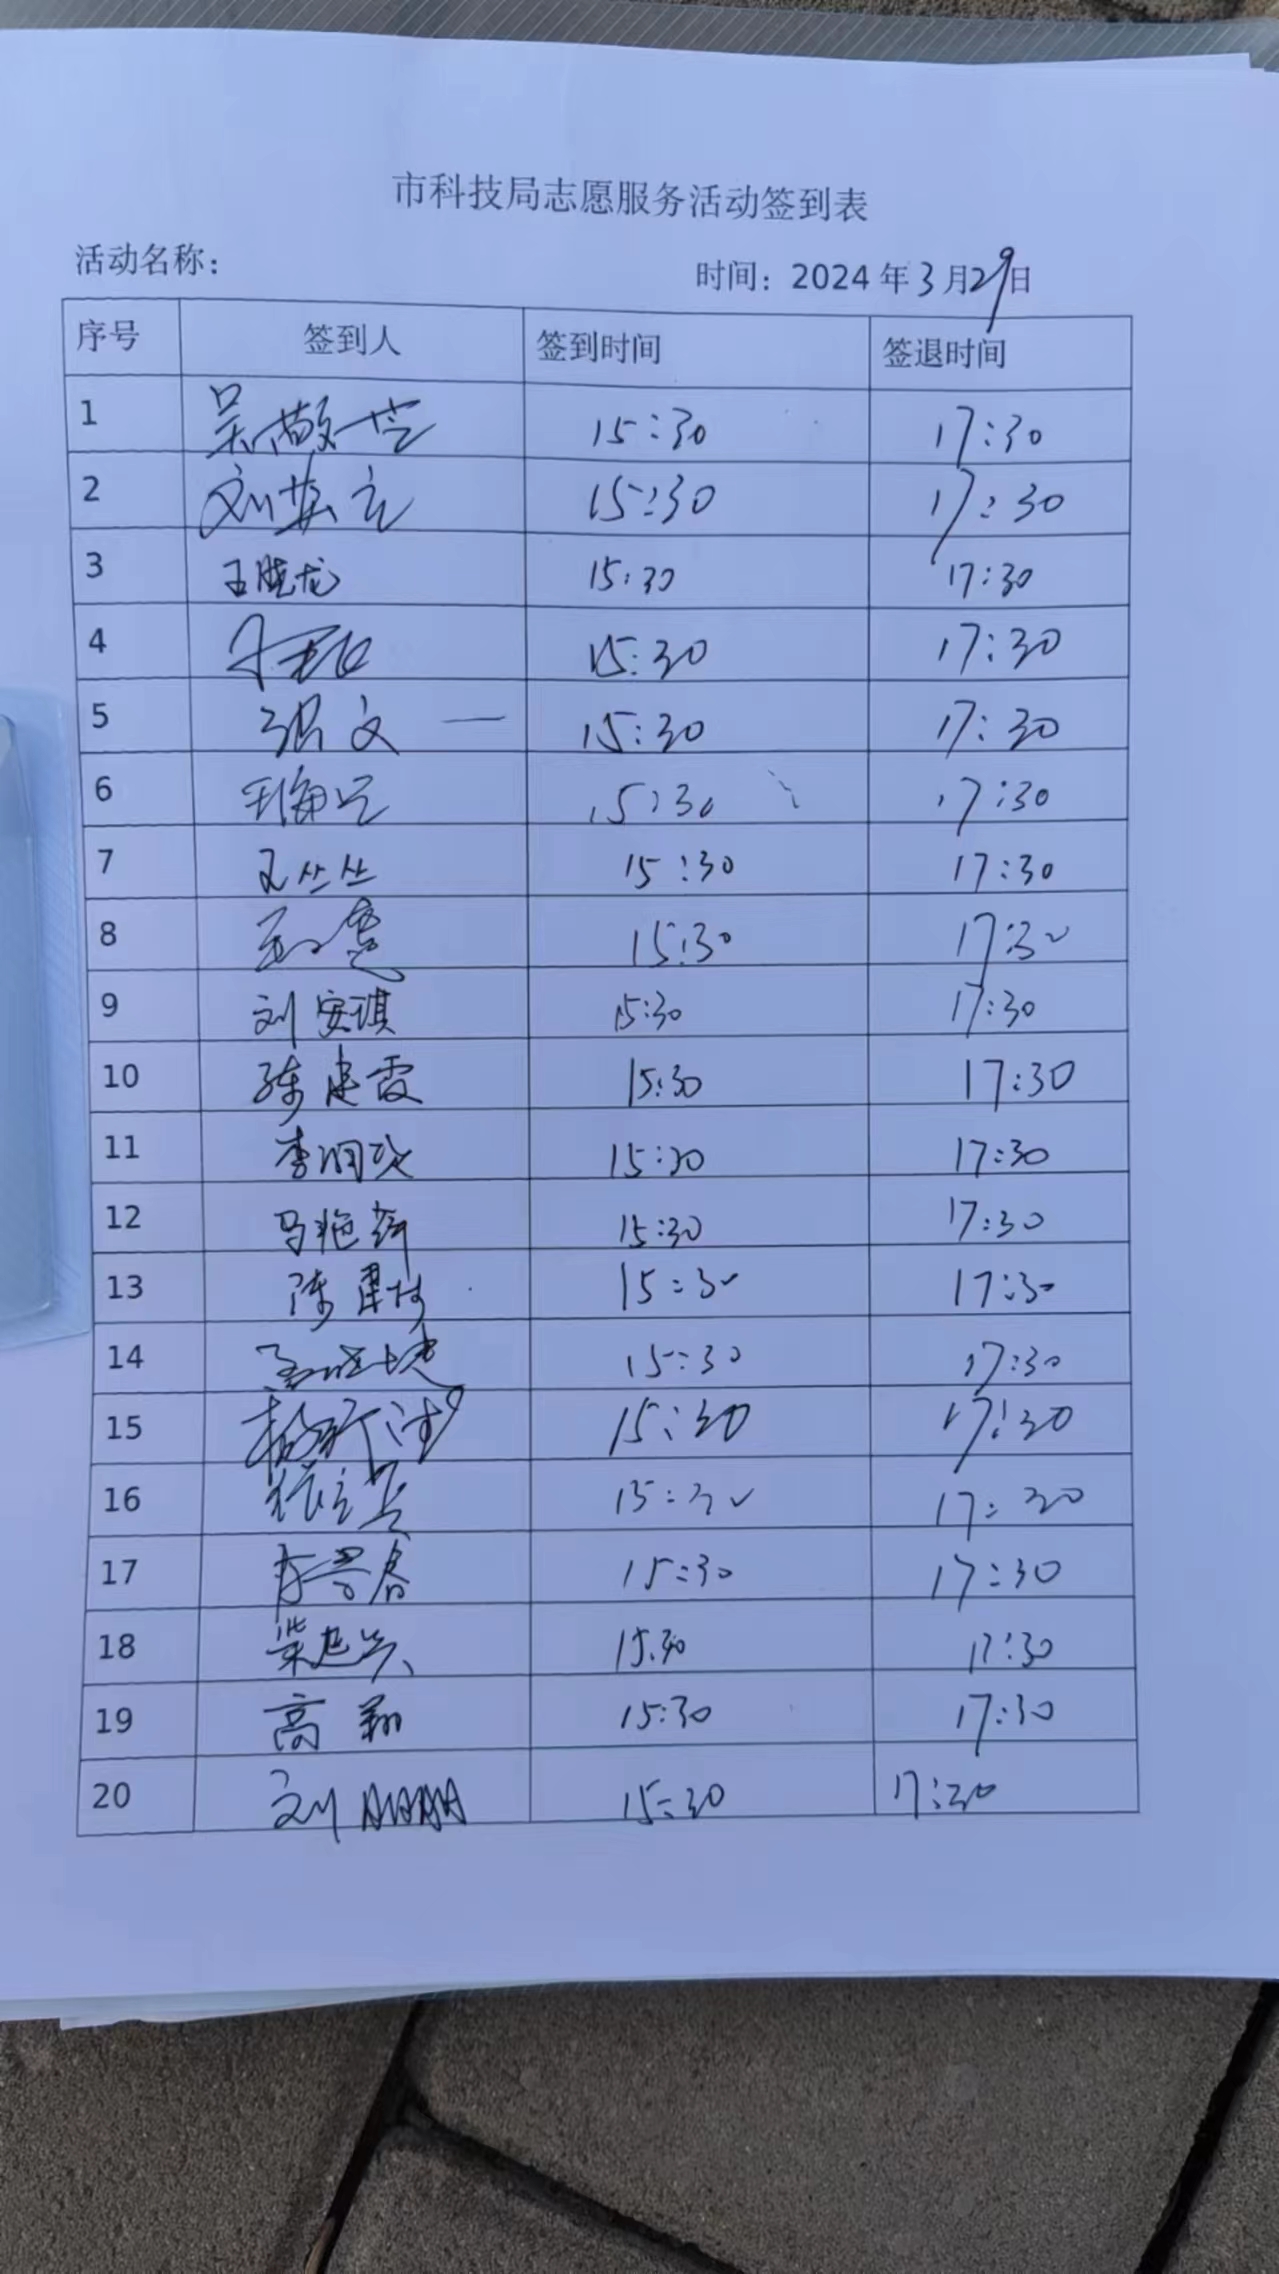 市科技局志愿服务活动签到表
活动名称： 时间：2024年3月29日
序号 签到人 签到时间 签退时间
1 15:30 17:30
2 15:30 17:30
3 王晓龙 15:30 17:30
4 15:30 17:30
5 张文一 15:30 17:30
6 15:30 17:30
7 王丛丛 15:30 17:30
8 15:30 17:30
9 刘安琪 15:30 17:30
10 陈建霞 15:30 17:30
11 15:30 17:30
12 15:30 17:30
13 15:30 17:30
14 15:30 17:30
15 15:30 17:30
16 15:30 17:30
17 15:30 17:30
18 15:30 17:30
19 高翔 15:30 17:30
20 刘朋朋 15:30 17:30